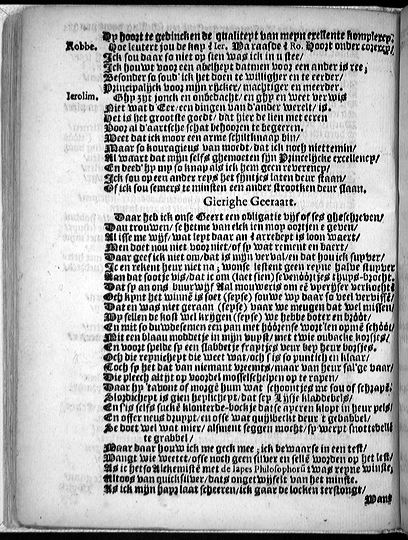 Hy hoort te gedincken de qualiteyt van meyn exellente complexcy;
Robbe. Hoe leutert jou de kop Jer. Wa raasde Ro. Hoort onder correxcy/
Ick sou daar so niet op sien was ick in u stee/
Ick houwt voor een abelheyt datmen voor een ander is ree;
Besonder so soud' ick het doen te willigher en te eerder/
Principalijck voor mijn rijcker/ machtiger en meerder.
Ierolim. Ghy zijt jonck en onbedacht/ en ghy en weet der wis
Niet wat d'Eer en dingen van d'ander werelt/ is.
Het is het grootste goedt/ dat hier de lien met eeren
Voor al d'aartsche schat behooren te begeeren.
Weet dat ick moor een arme schiltknaap bin/
Maar so kouragieus van moedt/ dat ick noch niettemin/
Al waart dat mijn selfs ghemoeten sijn Princelijcke excellency/
En deed' hy mijn so knap als ick hem geen reverency/
Ick sou op een ander reys het sijntjes laten deur staan/
Of ick sou semers te minsten een ander strootken deur slaan.
Gierighe Geeraart.
Daar heb ick onse Geert een obligatie vijf of ses gheschreven/
Dau trouwen/ se het me van elck ien mop oortjen e geven/
Al isse me wijf/ wat leyt daar an? arredept is loon waert/
Men doet jou niet voor niet/ of sp wat rement en baert/
Daar geef ick niet om/ dat is mijn verval/ en dat hou ick suyver/
Ic en reken heur niet na; wonse testent geen reyne halve stuyver
Aan dat sootje vis/ dat ic om (laet sien) sevenoortjes thuys-brocht,
Dat sp an ons buurwijf Aal mouweris om een vperijser verkocht;
Och kynt het winne is soet (sepse) souwe wy daar so veel vervisse/
Dat en was niet geraan (sepse) daar we meugen dat wel missen/
Wy sellen de kost wel krijgen (sepse) we hebbe boter en broot
En mit so duwdese men een pan met hoorense wortelen opme schoot
Mit een blaau moddetje in mijn vuyst/ met twie oubacke korsjes;
En voort speelde sp een slabbetje frapsjes veur hep heur borsjes.
Och die repnichept die weet wat/ och s' is so puntich en klaar/
Toch sp het dat van niemant vreemts/ maar van heur sal'ge vaar/
Die pleech altijt op voordel mosselschelpen op te rapen/
Daar hy t'avont of morge hum wat schoontjes me sou of schrape.
Slordichept is gien heplichept/ dat sep Lijsje kladdebels/
En s'is selfs sucke klonterde-bockje dat se aperen klopt in heur pels/
En offer neus druppt/ en offe wat quijlbeckt deur 't gebabbel/
Se doet wel wat mier/ alsment seggen mocht/ sp werpt snottebelle
te grabbel/
Maar daar houw ick me geck mee; ick bewaarse in een test/
Wangt wie weetet/ offe noch geen silver en selle worden op het lest/
As ic het so Alchemiste met de lapes Philosophorum t was reyne winste;
Altoos van quicksilver/ dats ongetwijfelt van het minste.
As ick mijn hayr laat scheeren/ ick gaar de locken terstongt/
Wans